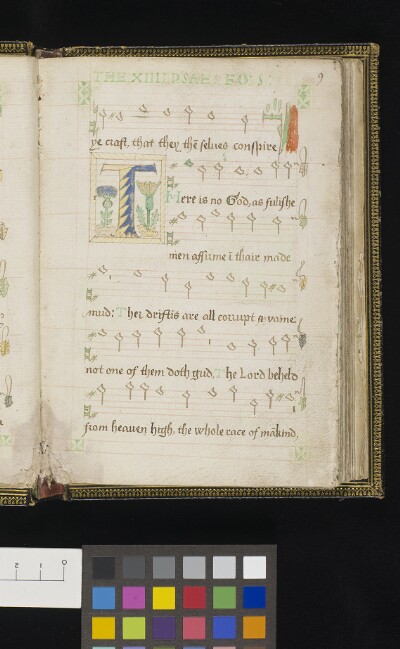 THE XIIII PSAL
9
ye craft, that they thē selues conspire,
There is no God, as fulishe
men affirme ī thair made
mud: Ther driftis are all corrupt & vaine:
not one of them doth gud, The Lord beheld
from heaven high, the whole race of mākind,
0 1 2